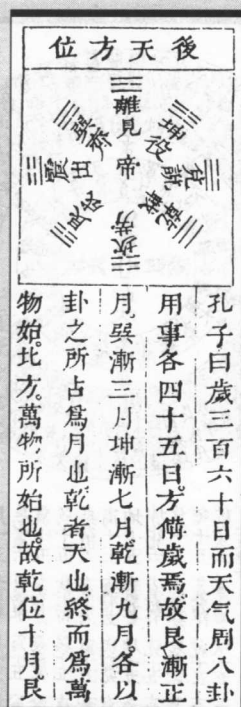 後天方位
離見
坤役
兌說
乾戰
坎勞
艮成
震出
巽齊
帝
孔子曰歲三百六十日而天气周八卦
用事各四十五日。方備歲焉。故艮漸正
月。巽漸三月坤漸七月。乾漸九月。各以
卦之所占爲月也。乾者天也。終而爲萬
物始。北方。萬物所始也。故乾位十月。艮